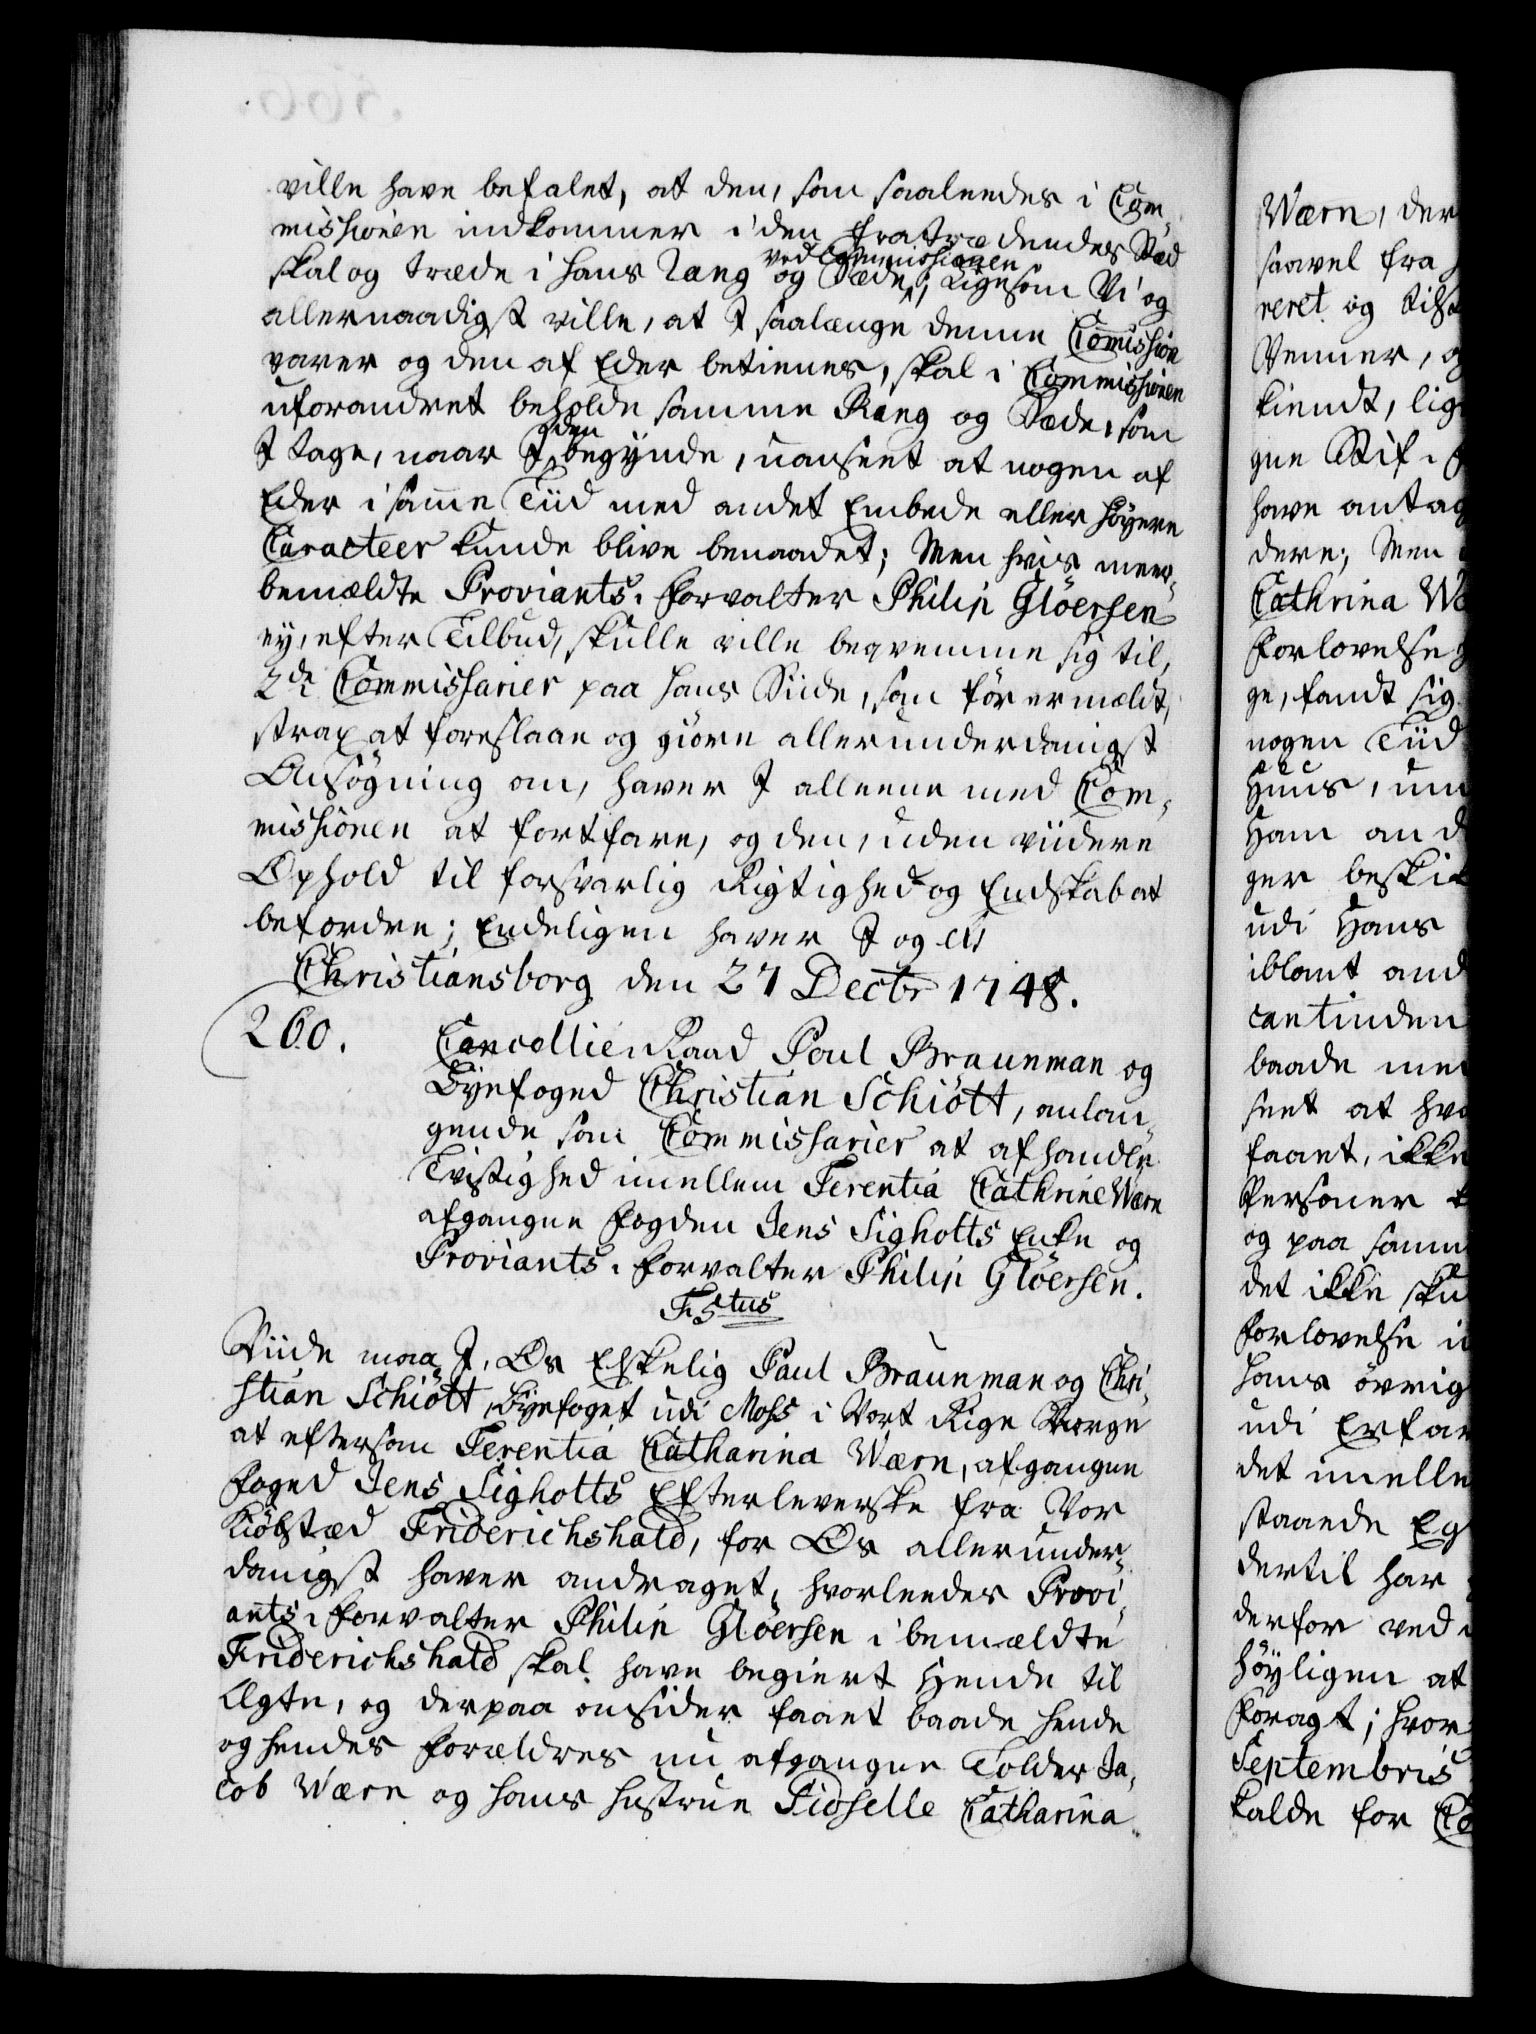 ville have befalet, at den, som saaleedes i Com-
missionen indkommer i den fratrædendes Stæd
skal og træde i hans Rang og Sæde ved Commissionen; Ligesom Vi og
allernaadigst ville, at I saalænge denne Commission
varer og den af Eder betienes, skal i Commissionen
uforandret beholde samme Rang og Sæde, som
I tage, naar I den begynde, uanseet at nogen af
Eder i samme Tiid med andet Embede eller høyere
Caracteer kunde blive benaadet; Men hvis meer-
bemældte Proviants-Forvalter Philip Glöersen
ey, efter Tilbud, skulle ville beqvemme sig til,
2de Commissarier paa hans Siide, som før ermældt,
strax at foreslaae og giøre allerunderdanigst
Ansøgning om, haver I alleene med Com-
missionen at fortfare, og den, uden viidere
Ophold til forsvarlig Rigtighed og Endskab at
befordre; Endeligen haver I og
Christiansborg den 27 Dectbr 1748.
260. Cancellie-Raad Poul Braunman og
Byefoged Christian Schiött, anlan-
gende som Commissarier at afhandle
Tvistighed imellem Terentia Cathrine Wærn
afgangne Fogden Jens Sigholts Enke og
Proviants-Forvalter Philip Glöersen.
F. 5tus
Viide maa I, Os Elskelig Paul Braunman og Chri-
stian Schiött, Byefoget udi Moss i Vort Rige Norge
at eftersom Terentia Catharina Wærn, afgangen
Foged Jens Sigholts Efterleverske fra Vor
Kiøbstæd Friderichshald, for Os allerunder-
danigst haver andraget, hvorleedes Provi-
ants-Forvalter Philip Glöersen i bemældte
Friderichshald skal have begiert Hende til
Ægte, og derpaa omsider faaet baade hende
og hendes Forældres nu afgangne Tolder Ja-
cob Wærn og hans Hustrue Sidselle Catharina
Wærn, der
saavel fra
reret og tilst
Venner, o
kiendt, lig
gne Stif-
have antag
dere; Men
Cathrina Wæ
Forlovelse
ge, fandt sig
nogen Tiid
Huus, un
Ham and
ger beskik
udi Hans
iblant and
cantinden
baade me
seet at hva
faaet, ikke
Personer
og paa samm
det ikke sku
Forlovelse i
hans øvrig
udi Erfar
det imelle
staaende Eg
dertil har
derfor ved
høyligen at
Foragt; hvor
Septembris
kalde for Co